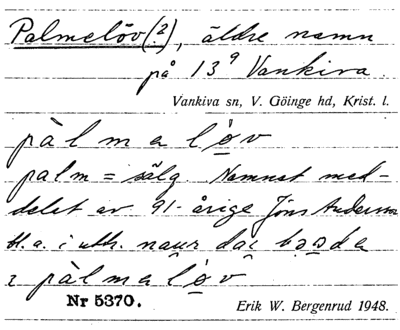 Palmelöv(?), äldre namn
på 13⁹ Vankiva.
Vankiva sn, V. Göinge hd, Krist. l.
pàlmalo̱v
palm = sälg. Namnet med-
delat av 91-årige Jöns Andersson
bl.a. i uttr. naur dai
i pàlmalo̱v
Nr 5370.
Erik W. Bergenrud 1948.